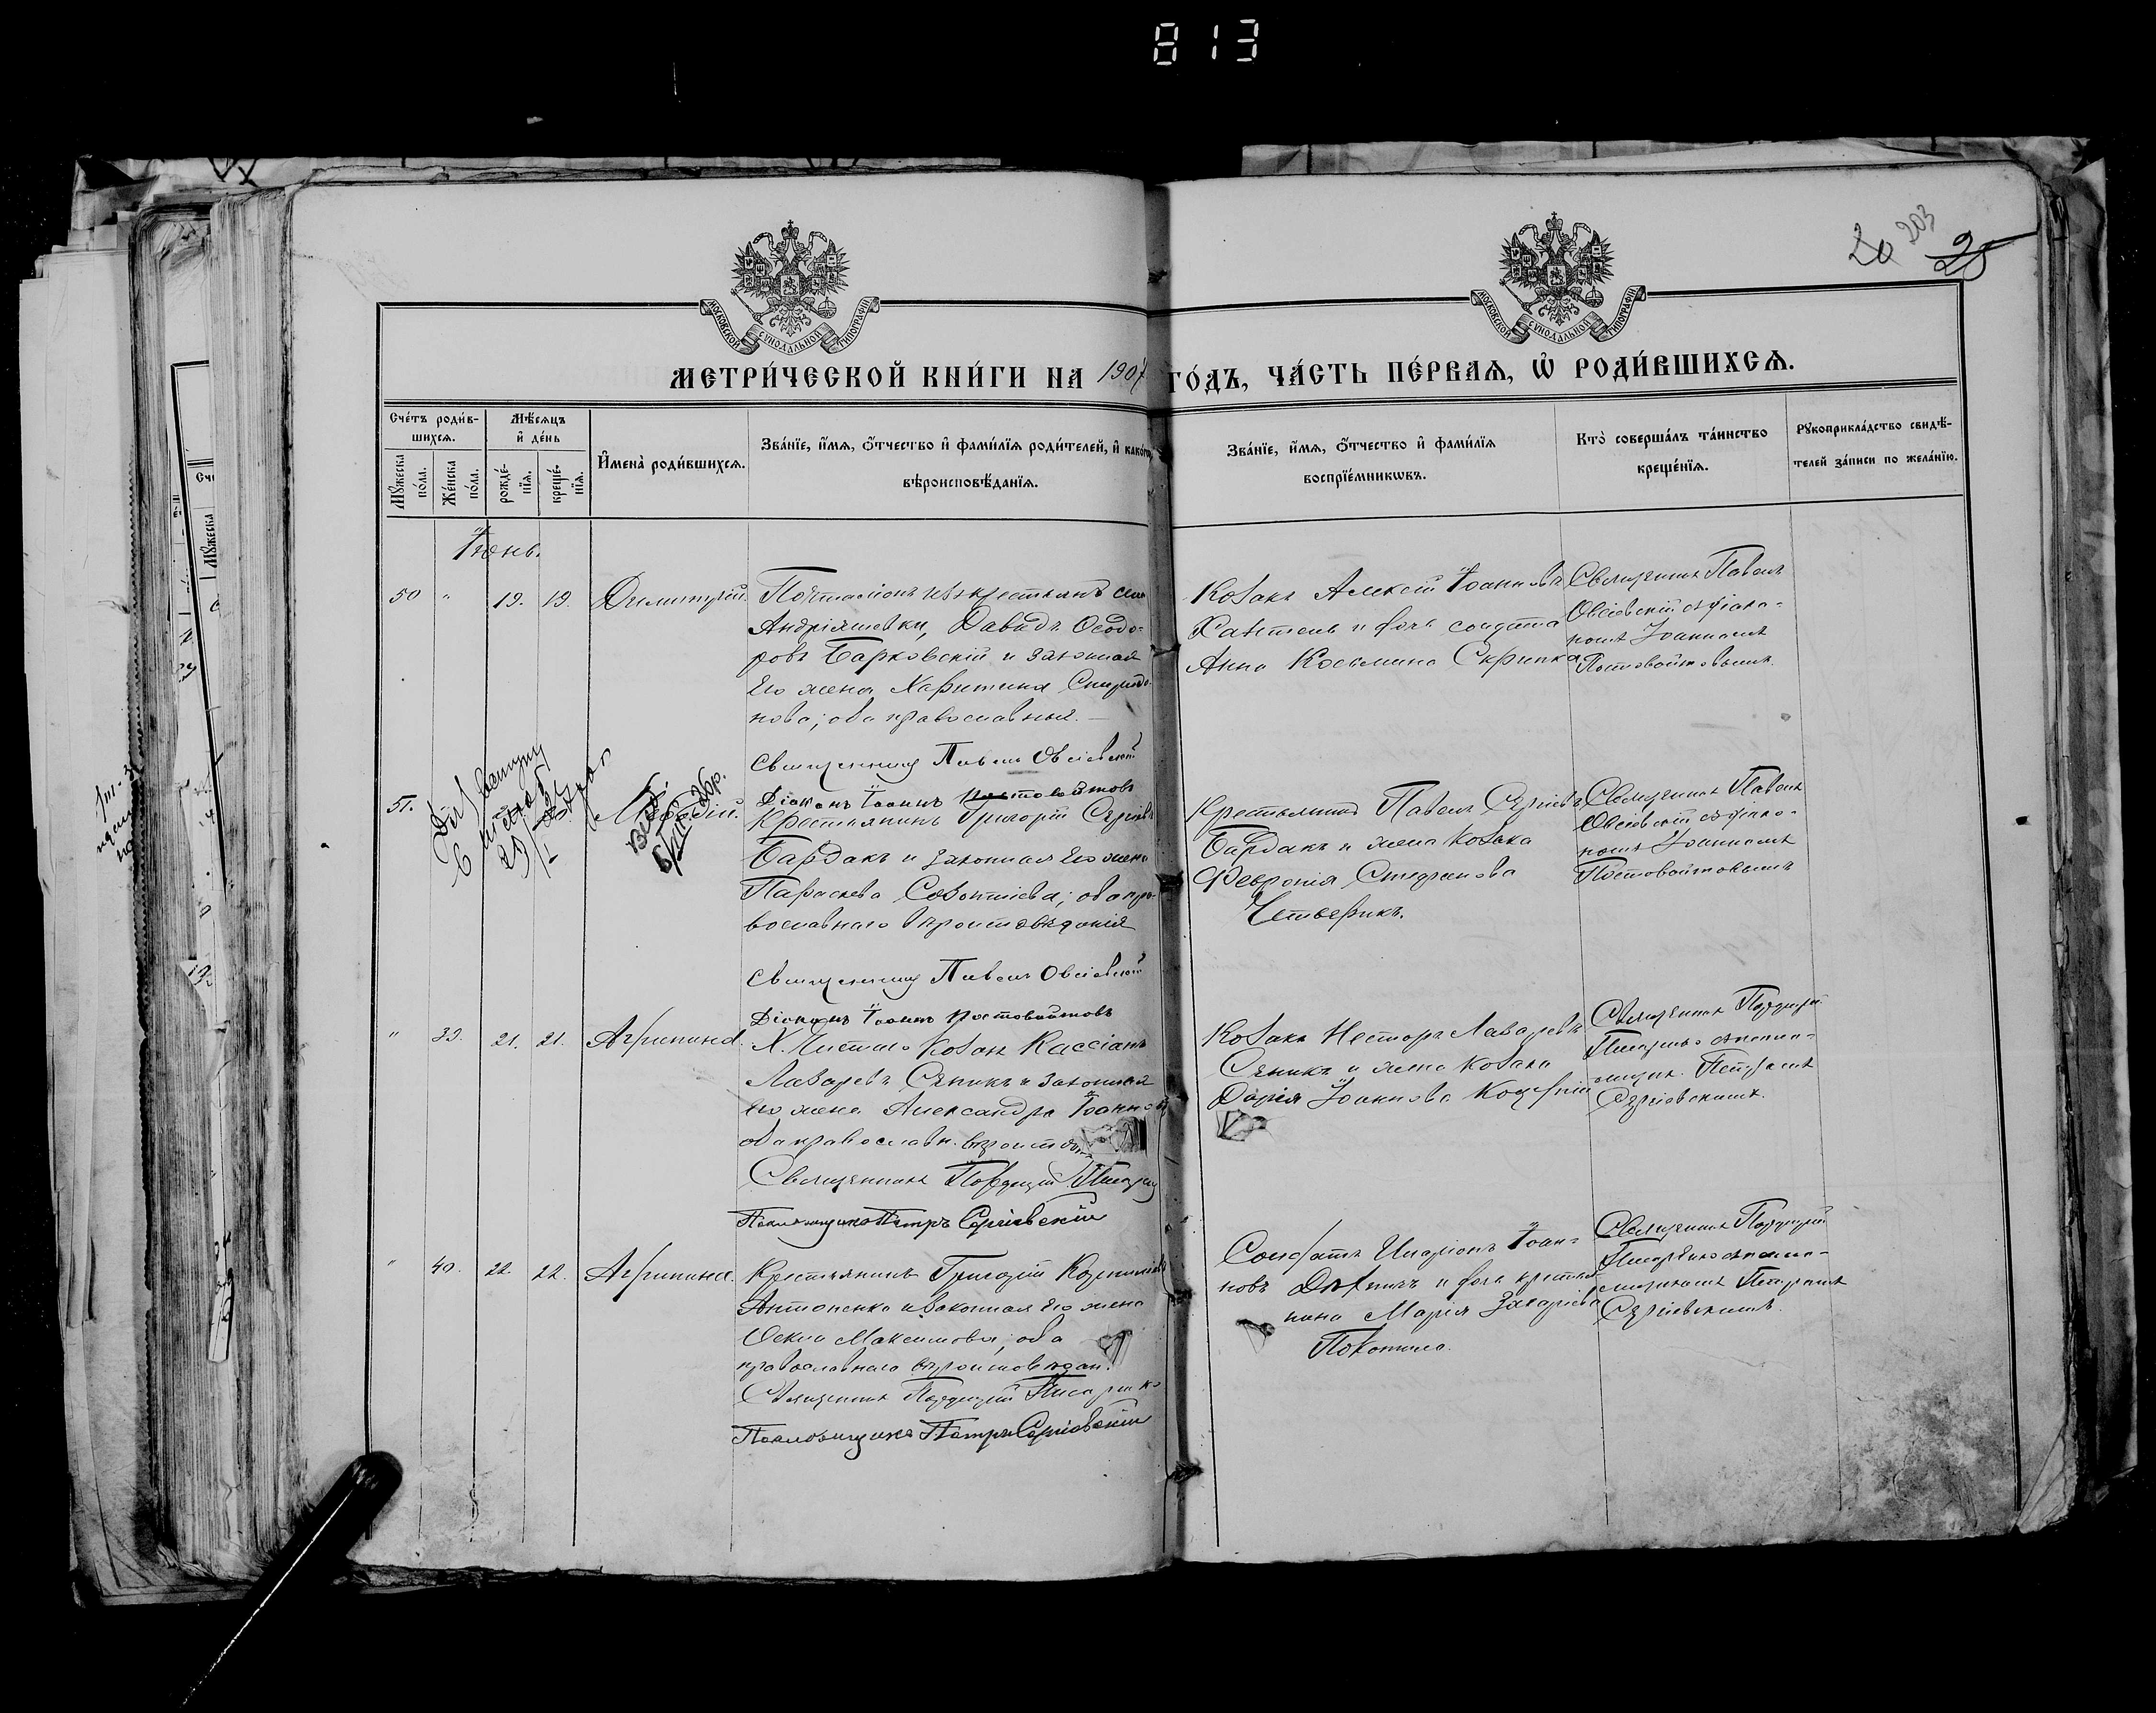 813
20 203
МОСКОВСКОЙ СУНОДАЛЬНОЙ ТИПОГРАФІИ
МОСКОВСКОЙ СУНОДАЛЬНОЙ ТИПОГРАФІИ
МЕТРИ́ЧЕСКОЙ КНИ́ГИ НА 1907 ГО́ДЪ, ЧА́СТЬ ПЕ́РВАѦ, Ѡ҆ РОДИ́ВШИХСѦ.
Сче́тъ роди́в-
шихсѧ.
Мѣ́сѧцъ
и҆ де́нь
Мꙋ́жеска по́ла.
Же́нска по́ла.
рожде́-
нїѧ.
креще́-
нїѧ.
И҆мена̀ роди́вшихсѧ.
Зва́нїе, и҆́мѧ, ѻ҆́тчество и҆ фами́лїѧ роди́телей, и҆ како́гѡ
вѣроисповѣ́данїѧ.
Зва́нїе, и҆́мѧ, ѻ҆́тчество и҆ фами́лїѧ
воспрїе́мникѡвъ.
Кто̀ соверша́лъ та́инство
креще́нїѧ.
Рꙋкоприкла́дство свидѣ́-
телей за́писи по жела́нїю.
Іюнь.
50 " 19. 19. Димитрій.
Почталіонъ изъ крестьянъ села
Андріяшевки, Давидъ Ѳеодо-
ровъ Барковскій и законная
его жена Харитина Спиридо-
нова; оба православные.
Священникъ Павелъ Овсіевскій
Діаконъ Іоаннъ Постовойтовъ
Козакъ Алексій Іоанновъ
и дочь солдата
Анна Косьмина Скрипка
Священникъ Павелъ
Овсіевскій съ діако-
номъ Іоанномъ
Постовойтовымъ.
51.
Меѳодій.
Крестьянинъ Григорій Сергіевъ
Бардакъ и законная его жена
Параскева Савватіева; оба пра-
вославнаго вѣроисповѣданія
Священникъ Павелъ Овсіевскій
Діаконъ Іоаннъ Постовойтовъ
Крестьянинъ Павелъ Сергіевъ
Бардакъ и жена козака
Февронія Стефанова
Четверикъ.
Священникъ Павелъ
Овсіевскій съ діако-
номъ Іоанномъ
Постовойтовымъ
" 39. 21. 21. Агрипина.
Х. Чистаго Козакъ Кассіанъ
Лазаревъ Сѣникъ и законная
его жена Александра Іоаннова
оба православн. вѣроиспов.
Священникъ Порфирій Писар
Псаломщикъ Петръ Сергіевскій
Козакъ Несторъ Лазаревъ
Сѣникъ и жена козака
Дарія Іоаннова
Священникъ Порфирій
Писаренко съ псалом-
щик. Петромъ
Сергіевскимъ.
" 40. 22. 22. Агрипина.
Крестьянинъ Григорій
Антоненко и законная его жена
Максимова; оба
православнаго вѣроисповѣдан.
Священникъ Порфирій Писаренко
Псаломщикъ Петръ Сергіевскій
Солдатъ Иларіонъ Іоан-
новъ и дочь крестья
нина Марія Захаріева
Покотило.
Священникъ Порфирій
Писаренко съ псало-
мщикомъ Петромъ
Сергіевскимъ.